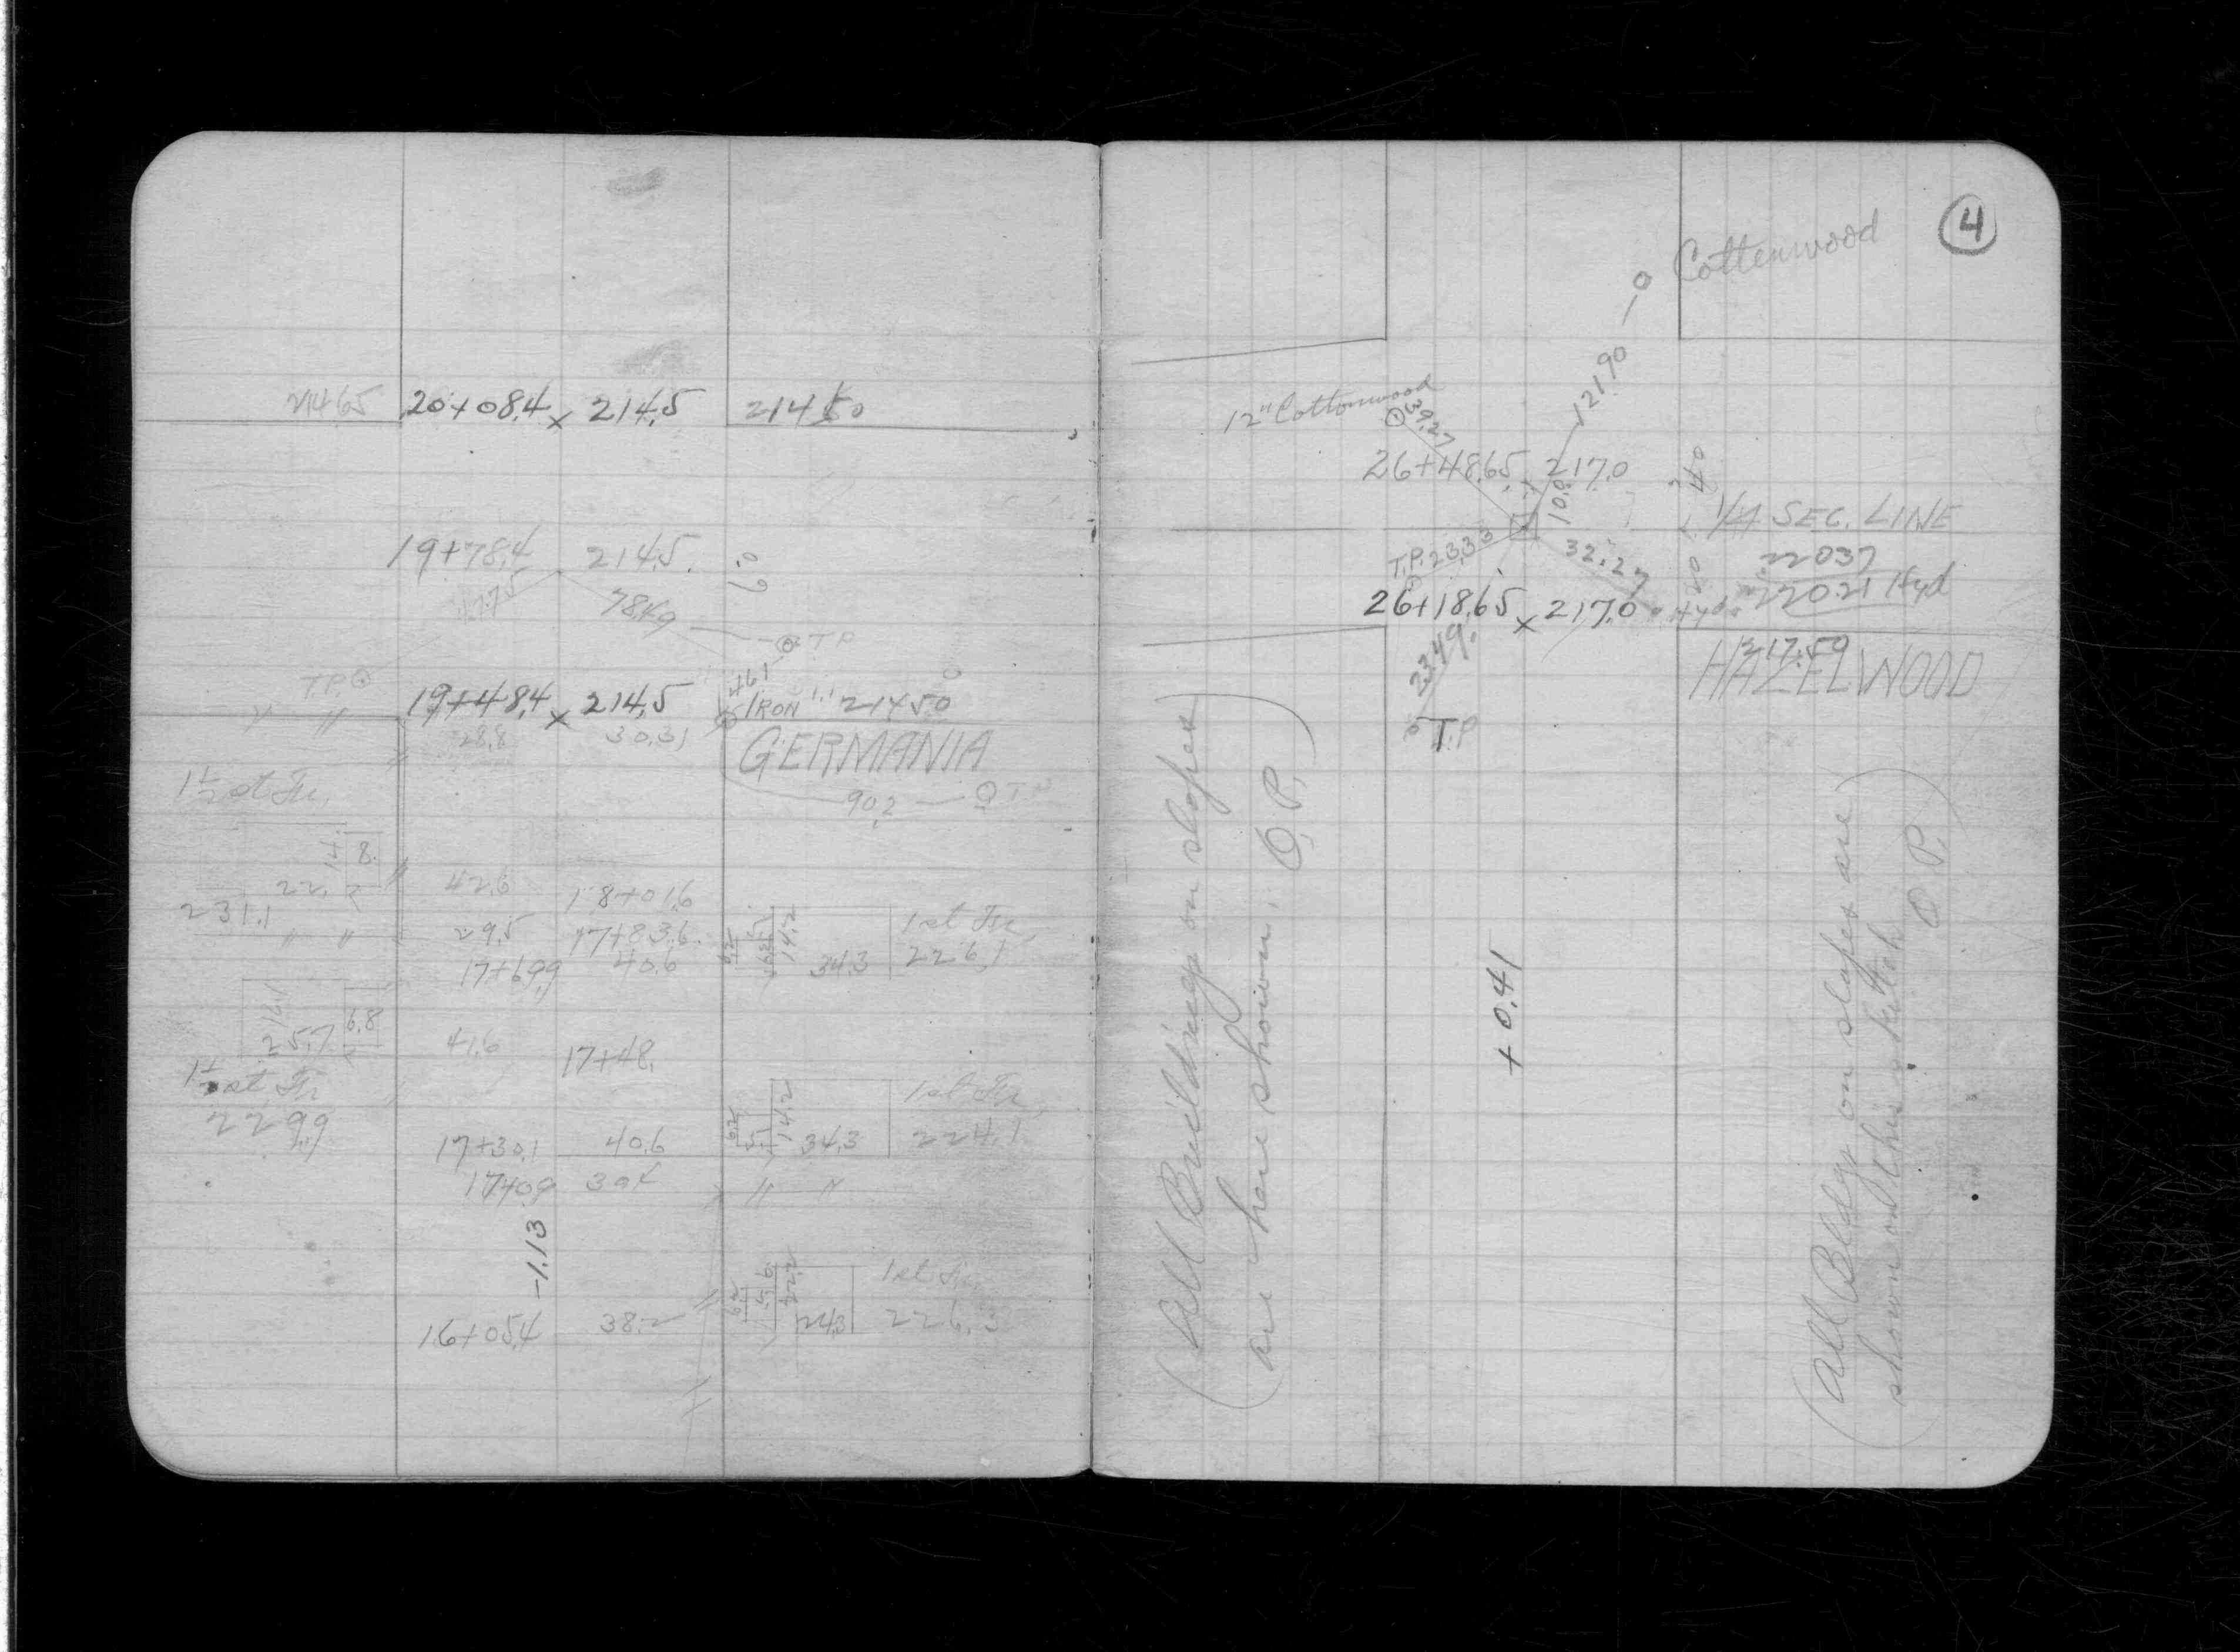 214.65 20+08.4 x 214.5 214.50
19+78.4 214.5.
47.75 78.49
T.P.
461 T.P.
19+48.4 x 214.5 IRON 214.50
" "
28.8 30.31
GERMANIA
90.2
1½ st Fr.
14 8.
22.
42.6 18+01.6
231.1
" " 29.5 17+83.6
17+69.9 40.6 34.3 1 st Fr.
14.2 226.1
25.7 6.8
41.6 17+48.
1½ st Fr
229.9
1 st Fr.
17+30.1 40.6 14.2 34.3 224.1
17+09 30.5 " "
-1.13
1 st Fr.
16+05.4 38.2 22.2 24.3 226.3
4
Cottenwood
121.90
12" Cottonwood
39.27
26+48.65 217.0
10.0
40
1/4 SEC. LINE
T.P. 23.33 32.27
220.37
20
220.21 Hyd
26+18.65 x 217.0 Hyd.
217.50
HAZELWOOD
23.49
T.P
(All Buildings on slopes
are here shown. O.P.)
+0.41
(All Bldgs on slopes are
shown on this sketch O.P.)